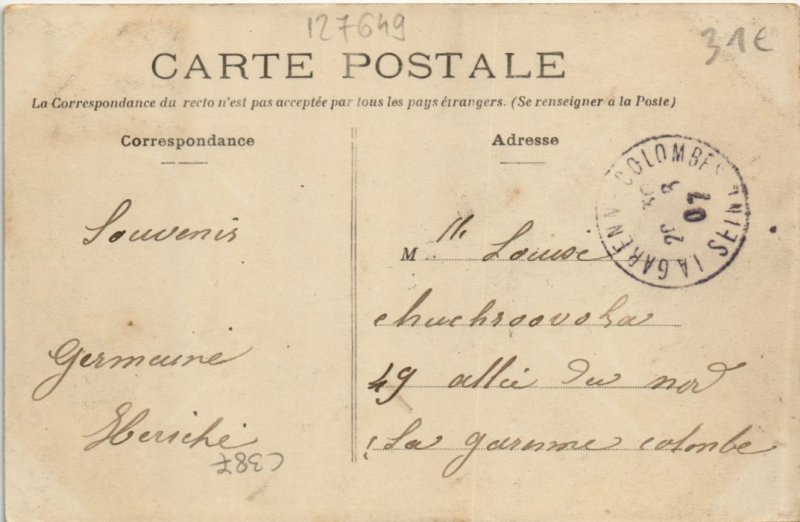 127649
31€
CARTE POSTALE
La Correspondance du recto n'est pas acceptée par tous les pays étrangers. (Se renseigner a la Poste)
Correspondance
Adresse
LA GARENNE-COLOMBES SEINE
Souvenir
Germaine
M lle Louise
49 allée du nord
La garenne colombe
C387